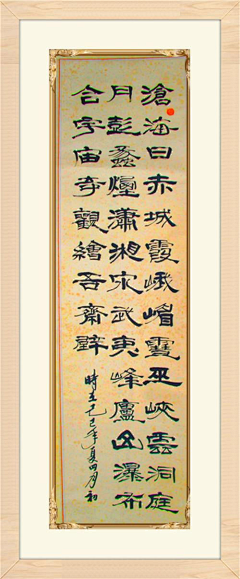 滄海日赤城霞峨嵋雪巫峽雲洞庭
月彭蠡煙瀟湘雨武夷峰廬山瀑布
合宇宙奇觀繪吾齋壁
時在己巳年夏四月初